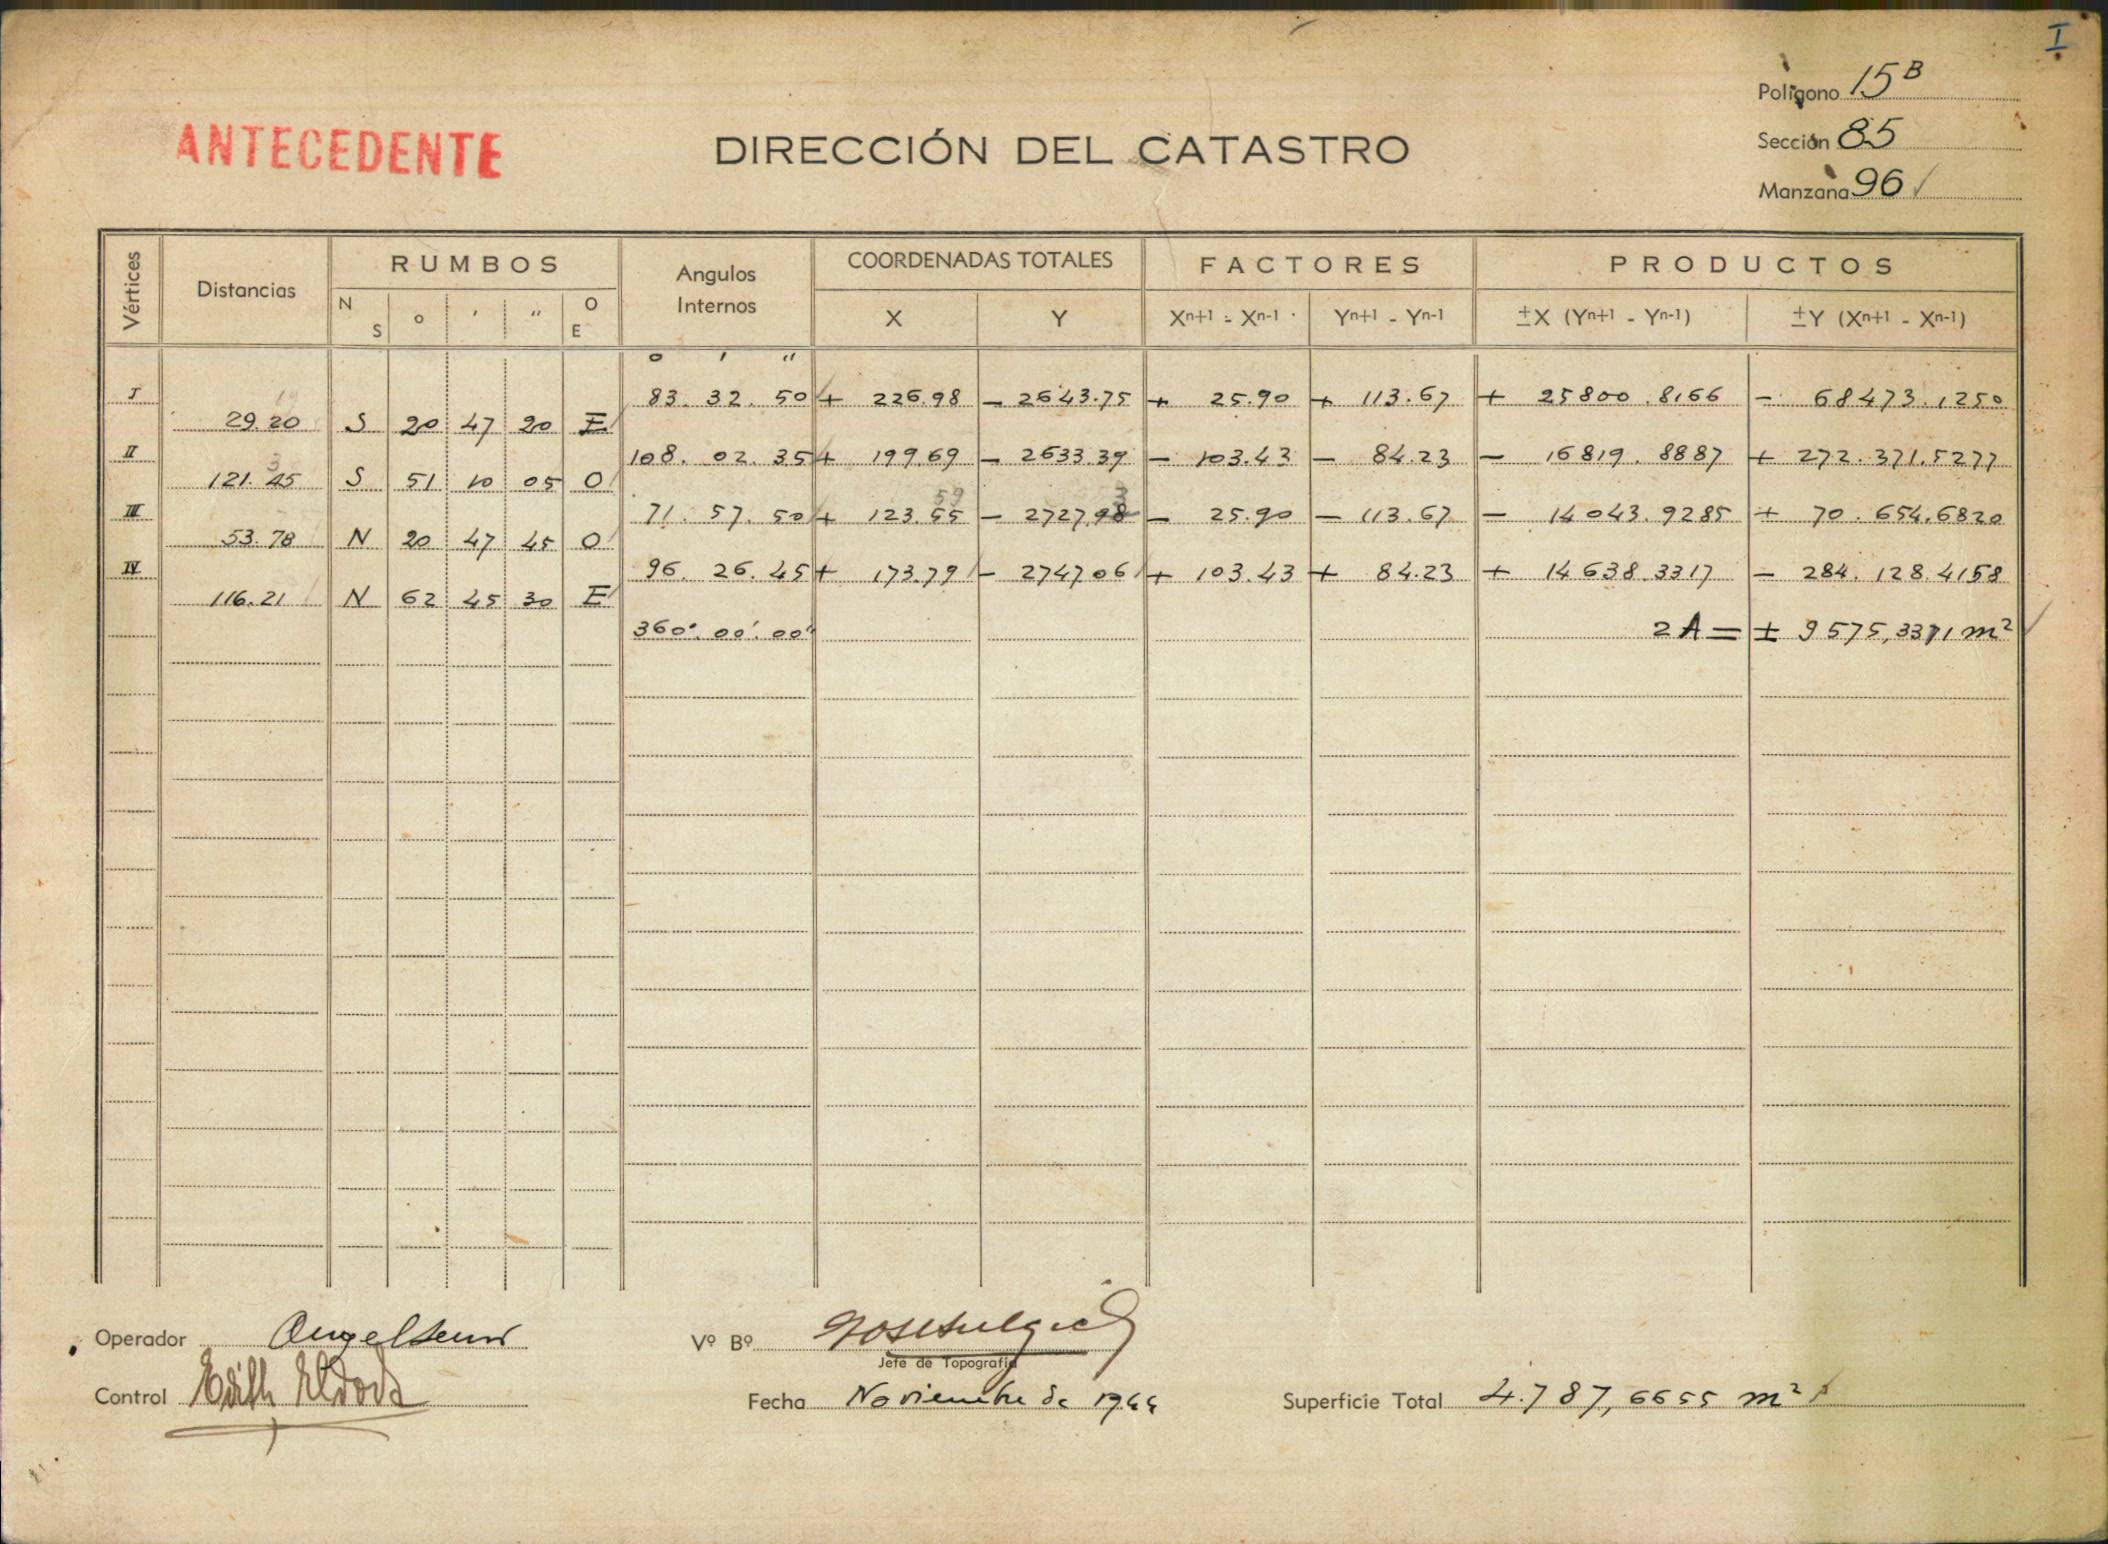 I
Polígono 15 B
Sección 85
Manzana 96 ✓
ANTECEDENTE
DIRECCIÓN DEL CATASTRO
Vértices Distancias RUMBOS Angulos Internos COORDENADAS TOTALES FACTORES PRODUCTOS
N S o ' " O E X Y Xn+1 - Xn-1 Yn+1 - Yn-1 ±X (Yn+1 - Yn-1) ±Y (Xn+1 - Xn-1)
o ' "
I 83. 32. 50 + 226.98 - 2643.75 + 25.90 + 113.67 + 25800.8166 - 68473.1250
29.20 S 20 47 20 E
II 108. 02. 35 + 199.69 - 2633.39 - 103.43 - 84.23 - 16819.8887 + 272.371.5277
3
121.45 S 51 10 05 O
59 3
III 71. 57. 50 + 123.55 - 2727.98 - 25.90 - 113.67 - 14043.9285 + 70.654.6820
53.78 N 20 47 45 O
IV 96. 26. 45 + 173.79 - 2747.06 + 103.43 + 84.23 + 14638.3317 - 284.128.4158
116.21 N 62 45 30 E
360°.00'.00" 2A = ± 9575,3371 m²
Operador
Vº Bº
Jefe de Topografía
Control Edith
Fecha Noviembre de 1944
Superficie Total 4.787,6655 m²